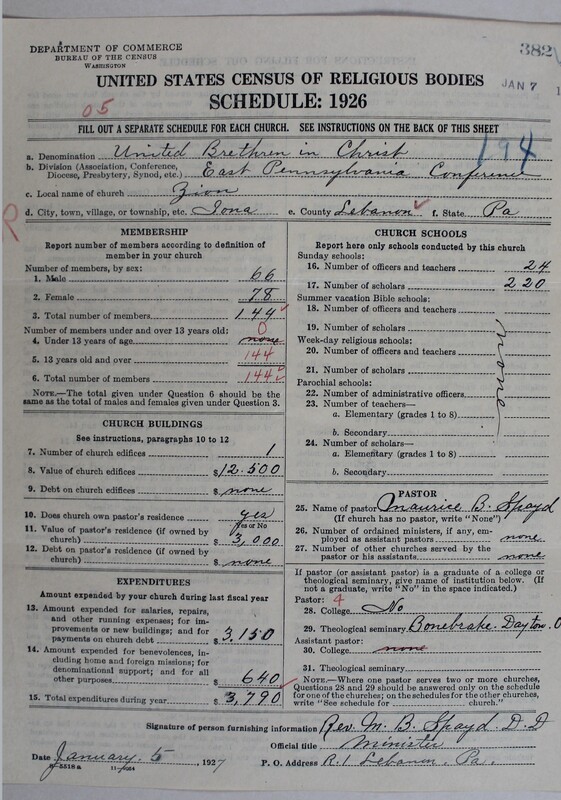 DEPARTMENT OF COMMERCE
BUREAU OF THE CENSUS
WASHINGTON
382
JAN 7 1
UNITED STATES CENSUS OF RELIGIOUS BODIES
SCHEDULE: 1926
05
FILL OUT A SEPARATE SCHEDULE FOR EACH CHURCH. SEE INSTRUCTIONS ON THE BACK OF THIS SHEET
194
a. Denomination United Brethren in Christ
b. Division (Association, Conference, Diocese, Presbytery, Synod, etc.) East Pennsylvania Conference
c. Local name of church Zion
d. City, town, village, or township, etc. Iona e. County Lebanon f. State Pa
R
MEMBERSHIP
Report number of members according to definition of
member in your church
Number of members, by sex:
1. Male 66
2. Female 78
3. Total number of members 144
Number of members under and over 13 years old: 0
4. Under 13 years of age none
5. 13 years old and over 144
6. Total number of members 144
NOTE.—The total given under Question 6 should be
the same as the total of males and females given under Question 3.
CHURCH BUILDINGS
See instructions, paragraphs 10 to 12
7. Number of church edifices 1
8. Value of church edifices $12.500
9. Debt on church edifices $ none
10. Does church own pastor's residence yes
Yes or No
11. Value of pastor's residence (if owned by
church) $ 3,000
12. Debt on pastor's residence (if owned by
church) $ none
EXPENDITURES
Amount expended by your church during last fiscal year
13. Amount expended for salaries, repairs,
and other running expenses; for im-
provements or new buildings; and for
payments on church debt $ 3,150
14. Amount expended for benevolences, in-
cluding home and foreign missions; for
denominational support; and for all
other purposes 640
15. Total expenditures during year $3,790
CHURCH SCHOOLS
Report here only schools conducted by this church
Sunday schools:
16. Number of officers and teachers 24
17. Number of scholars 220
Summer vacation Bible schools:
18. Number of officers and teachers
19. Number of scholars
Week-day religious schools:
20. Number of officers and teachers
21. Number of scholars
none
Parochial schools:
22. Number of administrative officers
23. Number of teachers—
a. Elementary (grades 1 to 8)
b. Secondary
24. Number of scholars—
a. Elementary (grades 1 to 8)
b. Secondary
PASTOR
25. Name of pastor Maurice B. Spayd
(If church has no pastor, write "None")
26. Number of ordained ministers, if any, em-
ployed as assistant pastors none
27. Number of other churches served by the
pastor or his assistants none
If pastor (or assistant pastor) is a graduate of a college or
theological seminary, give name of institution below. (If
not a graduate, write "No" in the space indicated.)
Pastor: 4
28. College No
29. Theological seminary Bonebrake. Dayton, O
Assistant pastor:
30. College none
31. Theological seminary
NOTE.—Where one pastor serves two or more churches,
Questions 28 and 29 should be answered only on the schedule
for one of the churches; on the schedules for the other churches,
write "See schedule for church."
Signature of person furnishing information Rev. M. B. Spayd. D. D
Official title Minister
Date January 5, 1927 P. O. Address R. 1 Lebanon, Pa.
8-5518 a